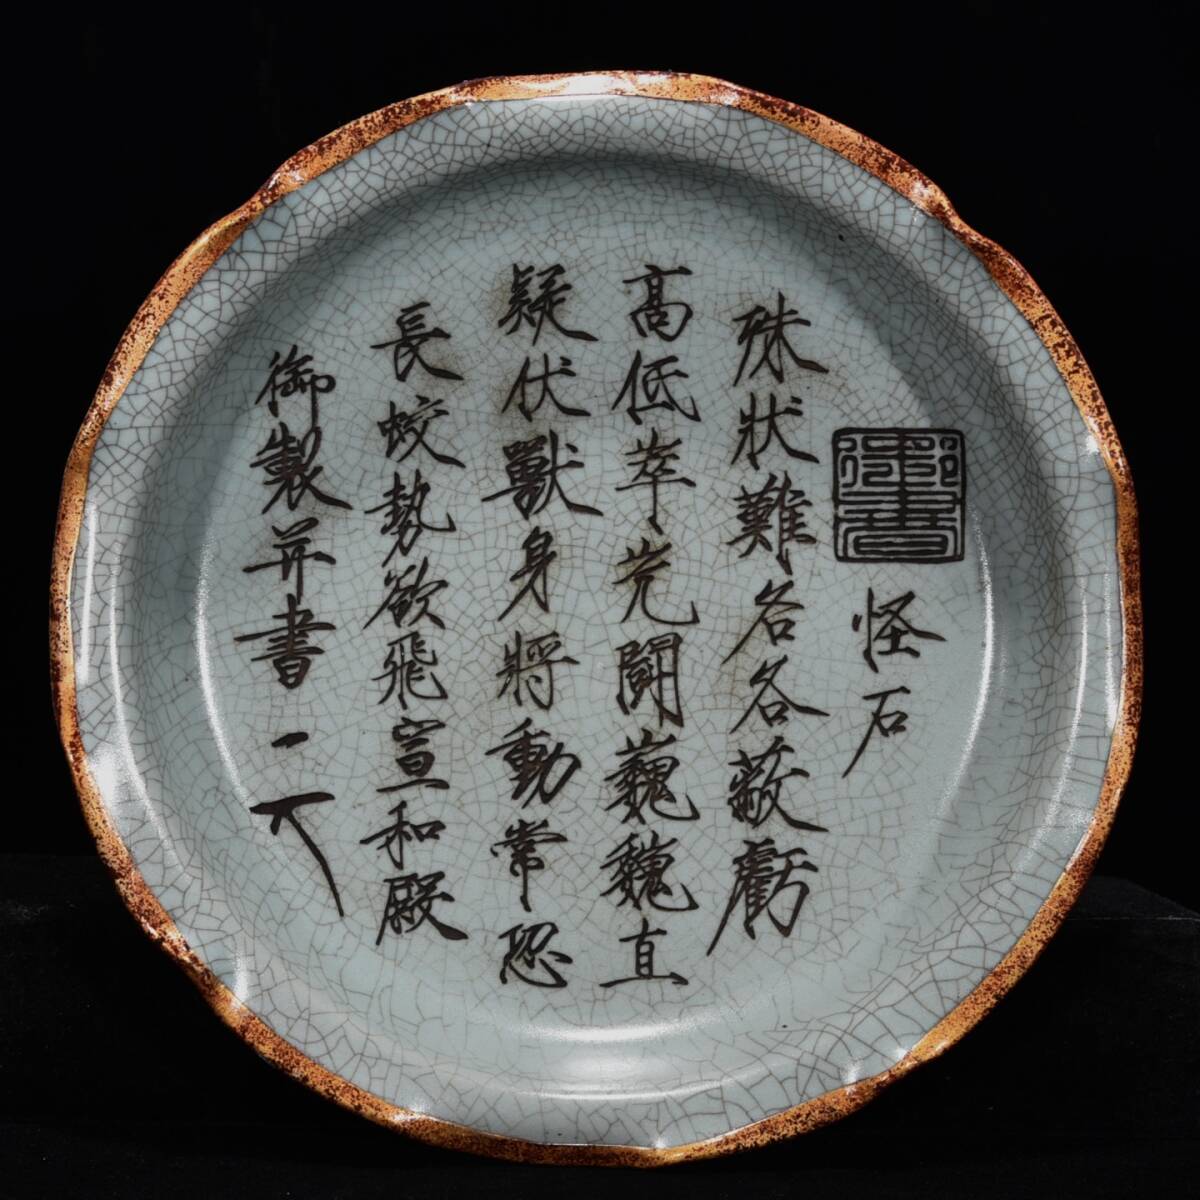 御書
怪石
殊狀難各各蔽虧
高低萃芫鬪巍巍直
疑伏獸身將動常恐
長蛟勢欲飛宣和殿
御製并書